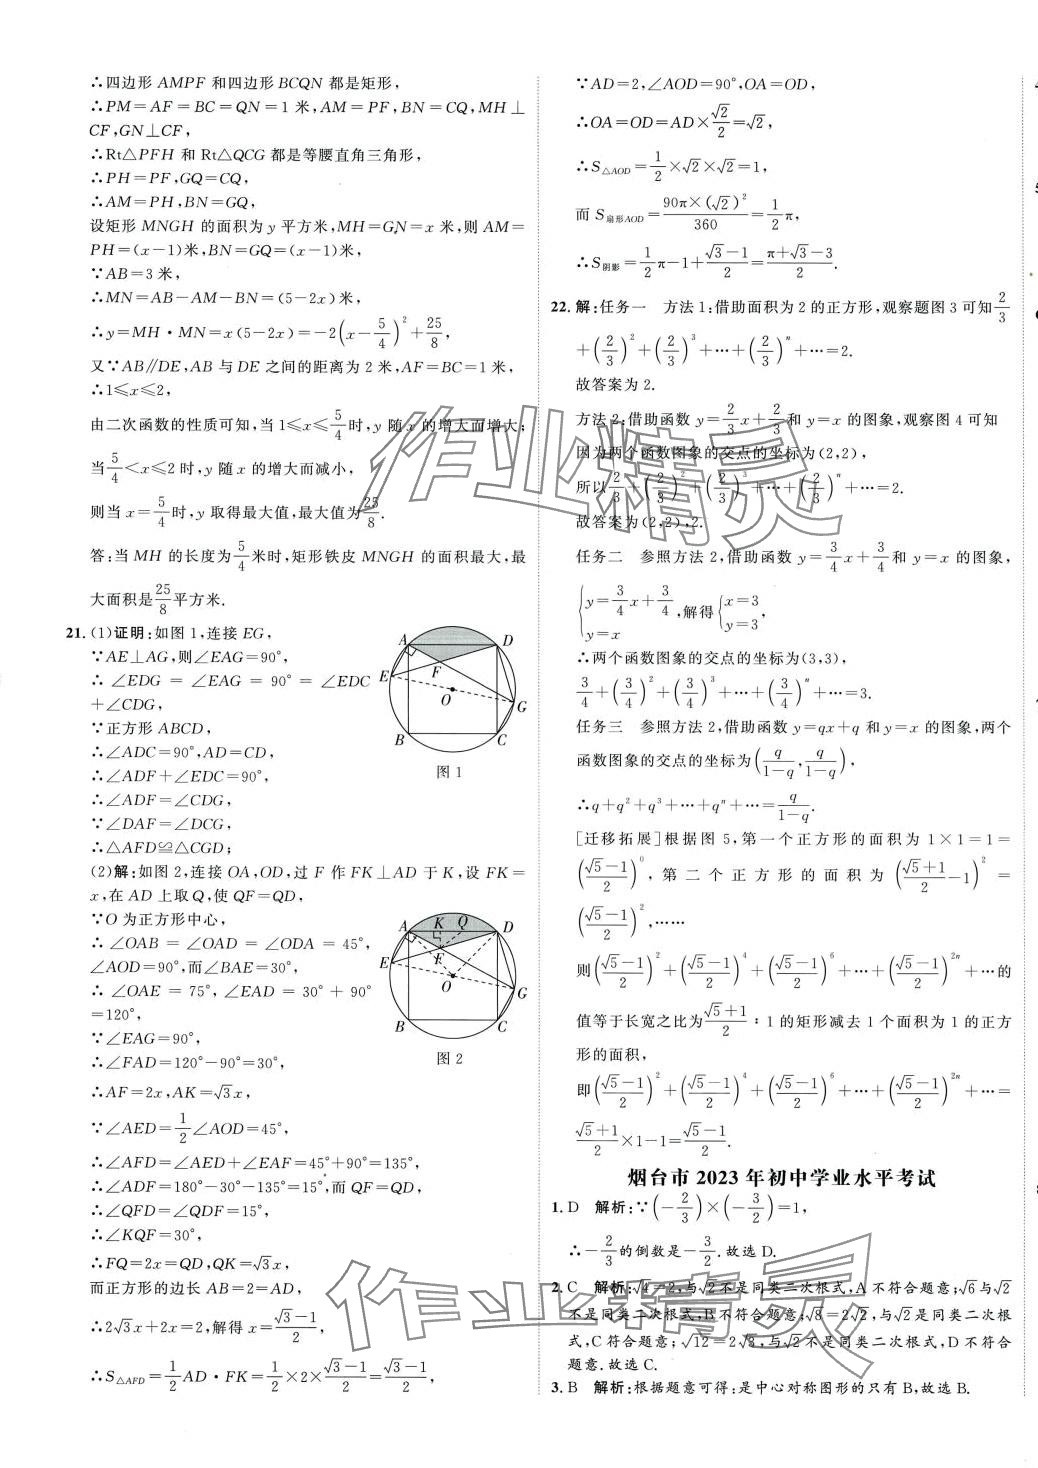 ∴四边形 AMPF 和四边形 BCQN 都是矩形,
∴PM=AF=BC=QN=1 米,AM=PF,BN=CQ,MH⊥
CF,GN⊥CF,
∴Rt△PFH 和 Rt△QCG 都是等腰直角三角形,
∴PH=PF,GQ=CQ,
∴AM=PH,BN=GQ,
设矩形 MNGH 的面积为 y 平方米,MH=GN=x 米,则 AM=
PH=(x-1)米,BN=GQ=(x-1)米,
∵AB=3 米,
∴MN=AB-AM-BN=(5-2x)米,
∴y=MH·MN=x(5-2x)=-2(x-5/4)²+25/8,
又∵AB∥DE,AB 与 DE 之间的距离为 2 米,AF=BC=1 米,
∴1≤x≤2,
由二次函数的性质可知,当 1≤x≤5/4时,y 随 x 的增大而增大;
当5/4<x≤2 时,y 随 x 的增大而减小,
则当 x=5/4时,y 取得最大值,最大值为25/8.
答:当 MH 的长度为5/4米时,矩形铁皮 MNGH 的面积最大,最
大面积是25/8平方米.
21.(1)证明:如图 1,连接 EG,
∵AE⊥AG,则∠EAG=90°,
∴∠EDG=∠EAG=90°=∠EDC
+∠CDG,
∵正方形 ABCD,
∴∠ADC=90°,AD=CD,
∴∠ADF+∠EDC=90°,
∴∠ADF=∠CDG,
∵∠DAF=∠DCG,
∴△AFD≌△CGD;
A D E F O G B C
图 1
(2)解:如图 2,连接 OA,OD,过 F 作 FK⊥AD 于 K,设 FK=
x,在 AD 上取 Q,使 QF=QD,
∵O 为正方形中心,
∴∠OAB=∠OAD=∠ODA=45°,
∠AOD=90°,而∠BAE=30°,
∴∠OAE=75°,∠EAD=30°+90°
=120°,
∵∠EAG=90°,
∴∠FAD=120°-90°=30°,
∴AF=2x,AK=√3x,
A K Q D E F O G B C
图 2
∵∠AED=1/2∠AOD=45°,
∴∠AFD=∠AED+∠EAF=45°+90°=135°,
∴∠ADF=180°-30°-135°=15°,而 QF=QD,
∴∠QFD=∠QDF=15°,
∴∠KQF=30°,
∴FQ=2x=QD,QK=√3x,
而正方形的边长 AB=2=AD,
∴2√3x+2x=2,解得 x=(√3-1)/2,
∴S△AFD=1/2AD·FK=1/2×2×(√3-1)/2=(√3-1)/2,
∵AD=2,∠AOD=90°,OA=OD,
∴OA=OD=AD×√2/2=√2,
∴S△AOD=1/2×√2×√2=1,
而 S扇形AOD=90π×(√2)²/360=1/2π,
∴S阴影=1/2π-1+(√3-1)/2=(π+√3-3)/2.
22.解:任务一 方法 1:借助面积为 2 的正方形,观察题图 3 可知2/3
+(2/3)²+(2/3)³+…+(2/3)ⁿ+…=2.
故答案为 2.
方法 2:借助函数 y=2/3x+2/3和 y=x 的图象,观察图 4 可知
因为两个函数图象的交点的坐标为(2,2),
所以2/3+(2/3)²+(2/3)³+…+(2/3)ⁿ+…=2.
故答案为(2,2),2.
任务二 参照方法 2,借助函数 y=3/4x+3/4和 y=x 的图象,
{y=3/4x+3/4 y=x,解得{x=3 y=3,
∴两个函数图象的交点的坐标为(3,3),
3/4+(3/4)²+(3/4)³+…+(3/4)ⁿ+…=3.
任务三 参照方法 2,借助函数 y=qx+q 和 y=x 的图象,两个
函数图象的交点的坐标为(q/(1-q),q/(1-q)),
∴q+q²+q³+…+qⁿ+…=q/(1-q).
[迁移拓展]根据图 5,第一个正方形的面积为 1×1=1=
((√5-1)/2)⁰,第二个正方形的面积为((√5+1)/2-1)²=
((√5-1)/2)²,……
则((√5-1)/2)²+((√5-1)/2)⁴+((√5-1)/2)⁶+…+((√5-1)/2)²ⁿ+…的
值等于长宽之比为(√5+1)/2∶1 的矩形减去 1 个面积为 1 的正方
形的面积,
即((√5-1)/2)²+((√5-1)/2)⁴+((√5-1)/2)⁶+…+((√5-1)/2)²ⁿ+…=
(√5+1)/2×1-1=(√5-1)/2.
烟台市 2023 年初中学业水平考试
1. D 解析:∵(-2/3)×(-3/2)=1,
∴-2/3的倒数是-3/2.故选 D.
2. C 解析:√4=2,与√2不是同类二次根式,A 不符合题意;√6与√2
不是同类二次根式,B 不符合题意;√8=2√2,与√2是同类二次根
式,C 符合题意;√12=2√3,与√2不是同类二次根式,D 不符合
题意.故选 C.
3. B 解析:根据题意可得:是中心对称图形的只有 B,故选 B.
作业精灵
作业精灵